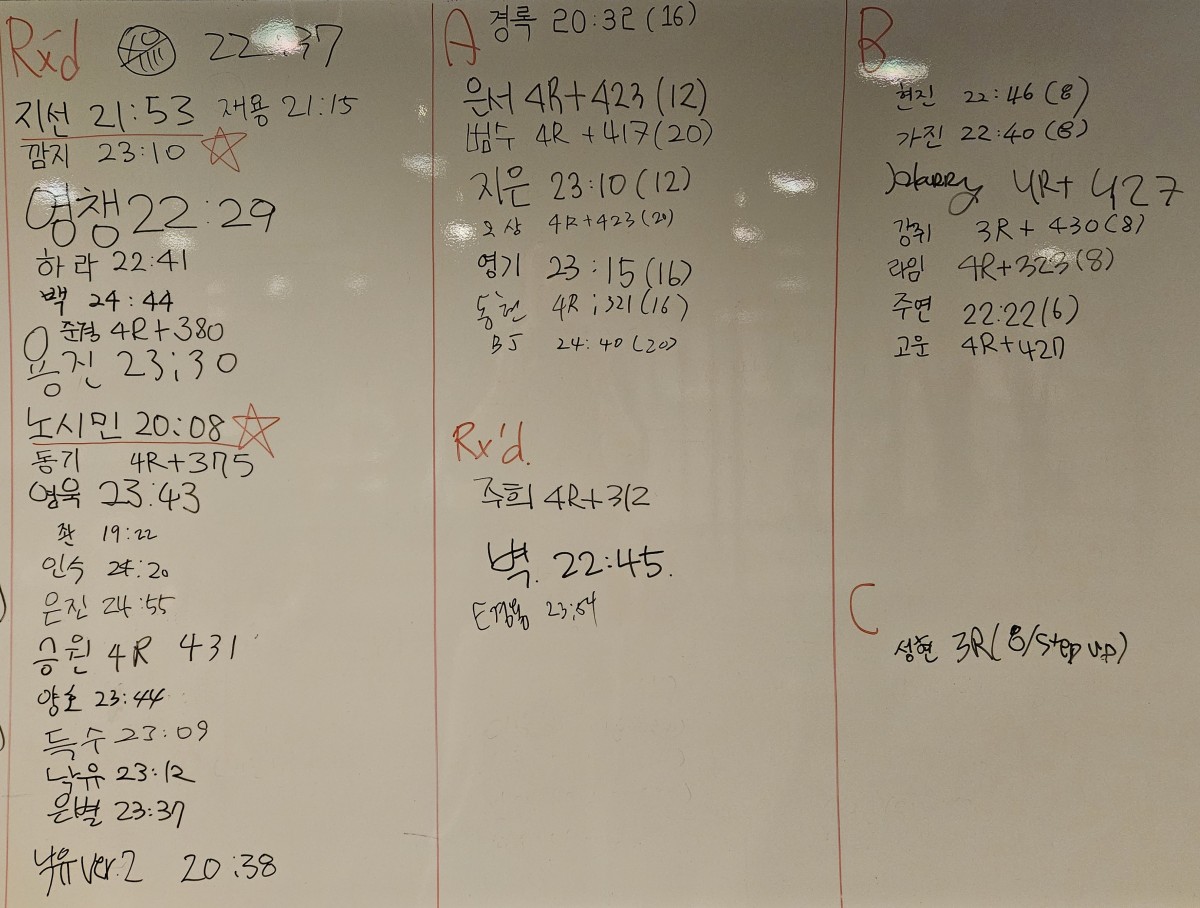 Rx'd 22:37
지선 21:53 재용 21:15
깜지 23:10
영챙 22:29
하라 22:41
백 24:44
준경 4R+380
용진 23;30
노시민 20:08
동기 4R+375
영욱 23:43
좌 19:22
인수 24:20
은진 24:55
승원 4R 431
양호 23:44
득수 23:09
낙유 23:12
은별 23:37
낙유 ver.2 20;38
A 경록 20:32 (16)
은서 4R+423 (12)
범수 4R +417 (20)
지은 23:10 (12)
4R+423 (20)
영기 23:15 (16)
동현 4R;321 (16)
BJ 24:40 (20)
Rx'd.
주희 4R+312
벽. 22:45.
23;54
B
현진 22:46 (8)
가진 22:40 (8)
Harry 4R+ 427
강쥐 3R + 430 (8)
라임 4R+323 (8)
주연 22:22 (6)
고운 4R+427
C
성현 3R( 8/step up)